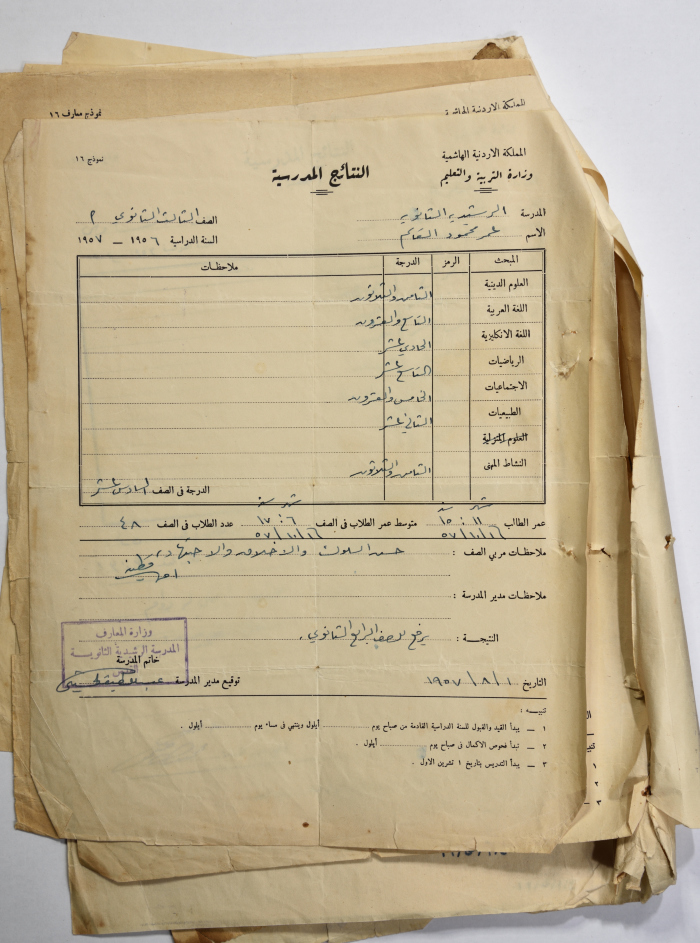 نموذج معارف ١٦
المملكة الاردنية الهاشمية
المملكة الاردنية الهاشمية
وزارة التربية والتعليم
نموذج ١٦
النتائج المدرسية
المدرسة الرشيدية الثانوية
الصف الثالث الثانوي م
الاسم عمر محمود القاسم
السنة الدراسية ١٩٥٦ – ١٩٥٧
المبحث الرمز الدرجة ملاحظات
العلوم الدينية الثامن والثلاثون
اللغة العربية التاسع والعشرون
اللغة الانكليزية الحادي عشر
الرياضيات التاسع عشر
الاجتماعيات الخامس والعشرون
الطبيعيات الثاني عشر
العلوم المنزلية
النشاط المهنى الثامن والثلاثون
الدرجة فى الصف السادس عشر
شهر سنة شهر سنة
عمر الطالب ١١ : ١٥ متوسط عمر الطلاب في الصف ٦ : ١٧ عدد الطلاب فى الصف ٤٨
ملاحظات مربي الصف : حسن السلوك والاخلاق والاجتهاد
ملاحظات مدير المدرسة :
النتيجة : يرفع للصف الرابع الثانوي .
وزارة المعارف
المدرسة الرشيدية الثانوية
القدس
خاتم المدرسة
التاريخ ١ / ٨ / ١٩٥٧
توقيع مدير المدرسة
تنبيه :
١ – يبدأ القيد والقبول للسنة الدراسية القادمة من صباح يوم أيلول وينتهي فى مساء يوم أيلول .
٢ – تبدأ فحوص الاكمال فى صباح يوم أيلول .
٣ – يبدأ التدريس بتاريخ ١ تشرين الاول .
١
٢
٣ –